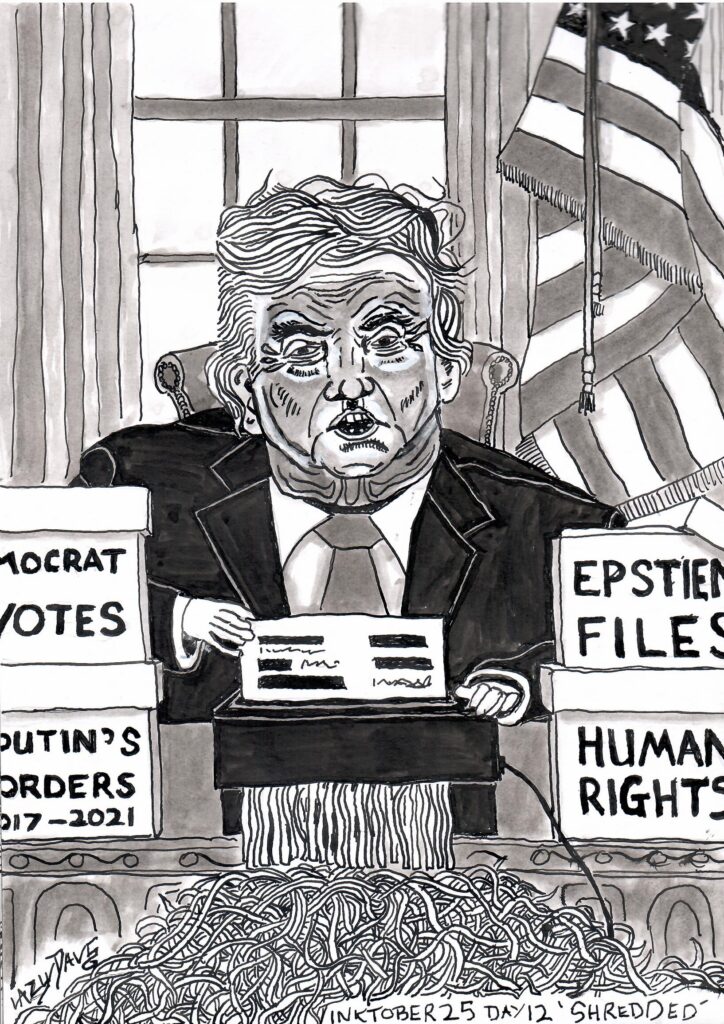 MOCRAT
VOTES
PUTIN'S
ORDERS
017-2021
EPSTIEN
FILES
HUMAN
RIGHTS
LAZY DAVE
INKTOBER 25 DAY 12 'SHREDDED'